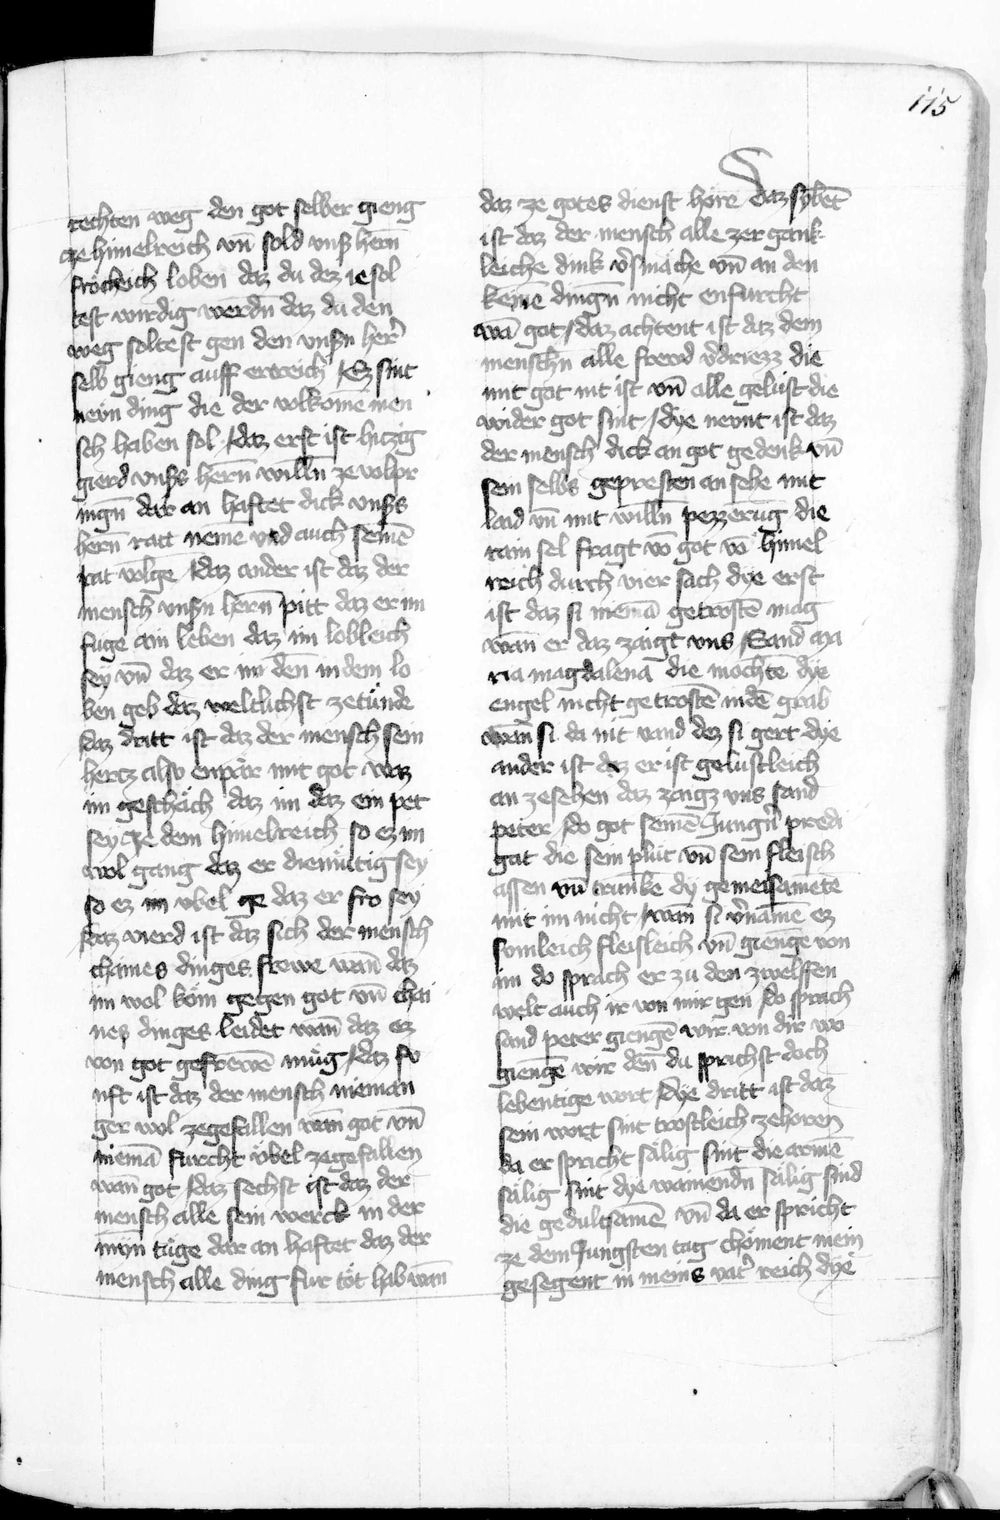 115
rechten weg den got selber gieng
cze himelreich vn̄ sold vnsß hern̄
fröleich loben daz du dez ie sol
test wirdig werdn̄ daz du den
weg soltest gen den vnsßn herr̄
selb gieng auff ertreich Ez sint
nevn ding die der volkome men
sch haben sol / daz erst ist hiczig
gierd vnsßs hern̄ willn̄ ze volpr
ingn̄ dar an haftet dick vnsßs
hern̄ ratt nemē vnd auch seinē
rat volge / daz ander ist daz der
mensch vnsßn hern̄ pitt daz er im
fuge ain leben daz im lobleich
sey vn̄ daz er im den in dem lo
ben geb daz weltlichst ze tünde
daz dritt ist daz der mensch sein
hertz also enpär mit got waz
im geschäch daz im daz ein pet
sey cze dem himelreich so ez im
wol gang daz er diemütig sey
so ez im vbel ge daz er fro sey
daz vierd ist daz sich der mensch
chaines dinges frewe wan̄ daz
im wol köm gegen got vn̄ chai
nes dinges leidet wan̄ daz ez
von got gefremē müg / daz fv
nft ist daz der mensch nieman
ger wol ze gefallen wan̄ got vn̄
niemā furcht vbel ze gefallen
wan̄ got / daz sechst ist daz der
mensch alle sein werck in der
mÿn tüge dar an haftet daz der
mensch alle ding fur töt hab wan̄
daz ze gotes dienst höre Daz sybēt
ist daz der mensch alle zer gank
leiche dink v̄smäche vn̄ an den
keinē dingn̄ nicht enfurcht
wā got / daz achtent ist daz dem
menschn alle frewd v̄driezz die
mit got nit ist vn̄ alle gelüst die
wider got sint / dye nevnt ist daz
der mensch dick an got gedenk vn̄
sein selbs gepresten an sehe mit
laid vn̄ mit willn̄ pezzerūg die
rain sel fragt vō got vō himel
reich durch vier sach dye erst
ist daz si niemā getrostē mag
wan̄ er daz zaigt vns Sand ma
ria magdalena die mochtē dye
engel nicht getrostē in dē grab
wan̄ si da nit vand dez si gert dye
ander ist daz er ist gelustleich
an ze sehen daz zaigz vns sand
peter / do got seinē Jungn̄ predi
gat die sein plüt vn̄ sein fleisch
assen vn̄ trunkē dy gemeisametē
mit im nicht / wan̄ si v̄namē ez
svnleich fleisleich vn̄ giengē von
im do sprach er zu den zwelffen
welt auch ir von mir gen / do sprach
sand peter giengē wir von dir wo
giengē wir den̄ du sprichst doch
lebentige wort / Dye dritt ist daz
sein wort sint trostleich ze horen
da er spricht sälig sint die armē
sälig sint dye wainendn̄ sälig sind
die gedultsamē vn̄ da er spricht
ze dem Jungsten tag chöment mein
gesegent in meins vatr̄ reich dye